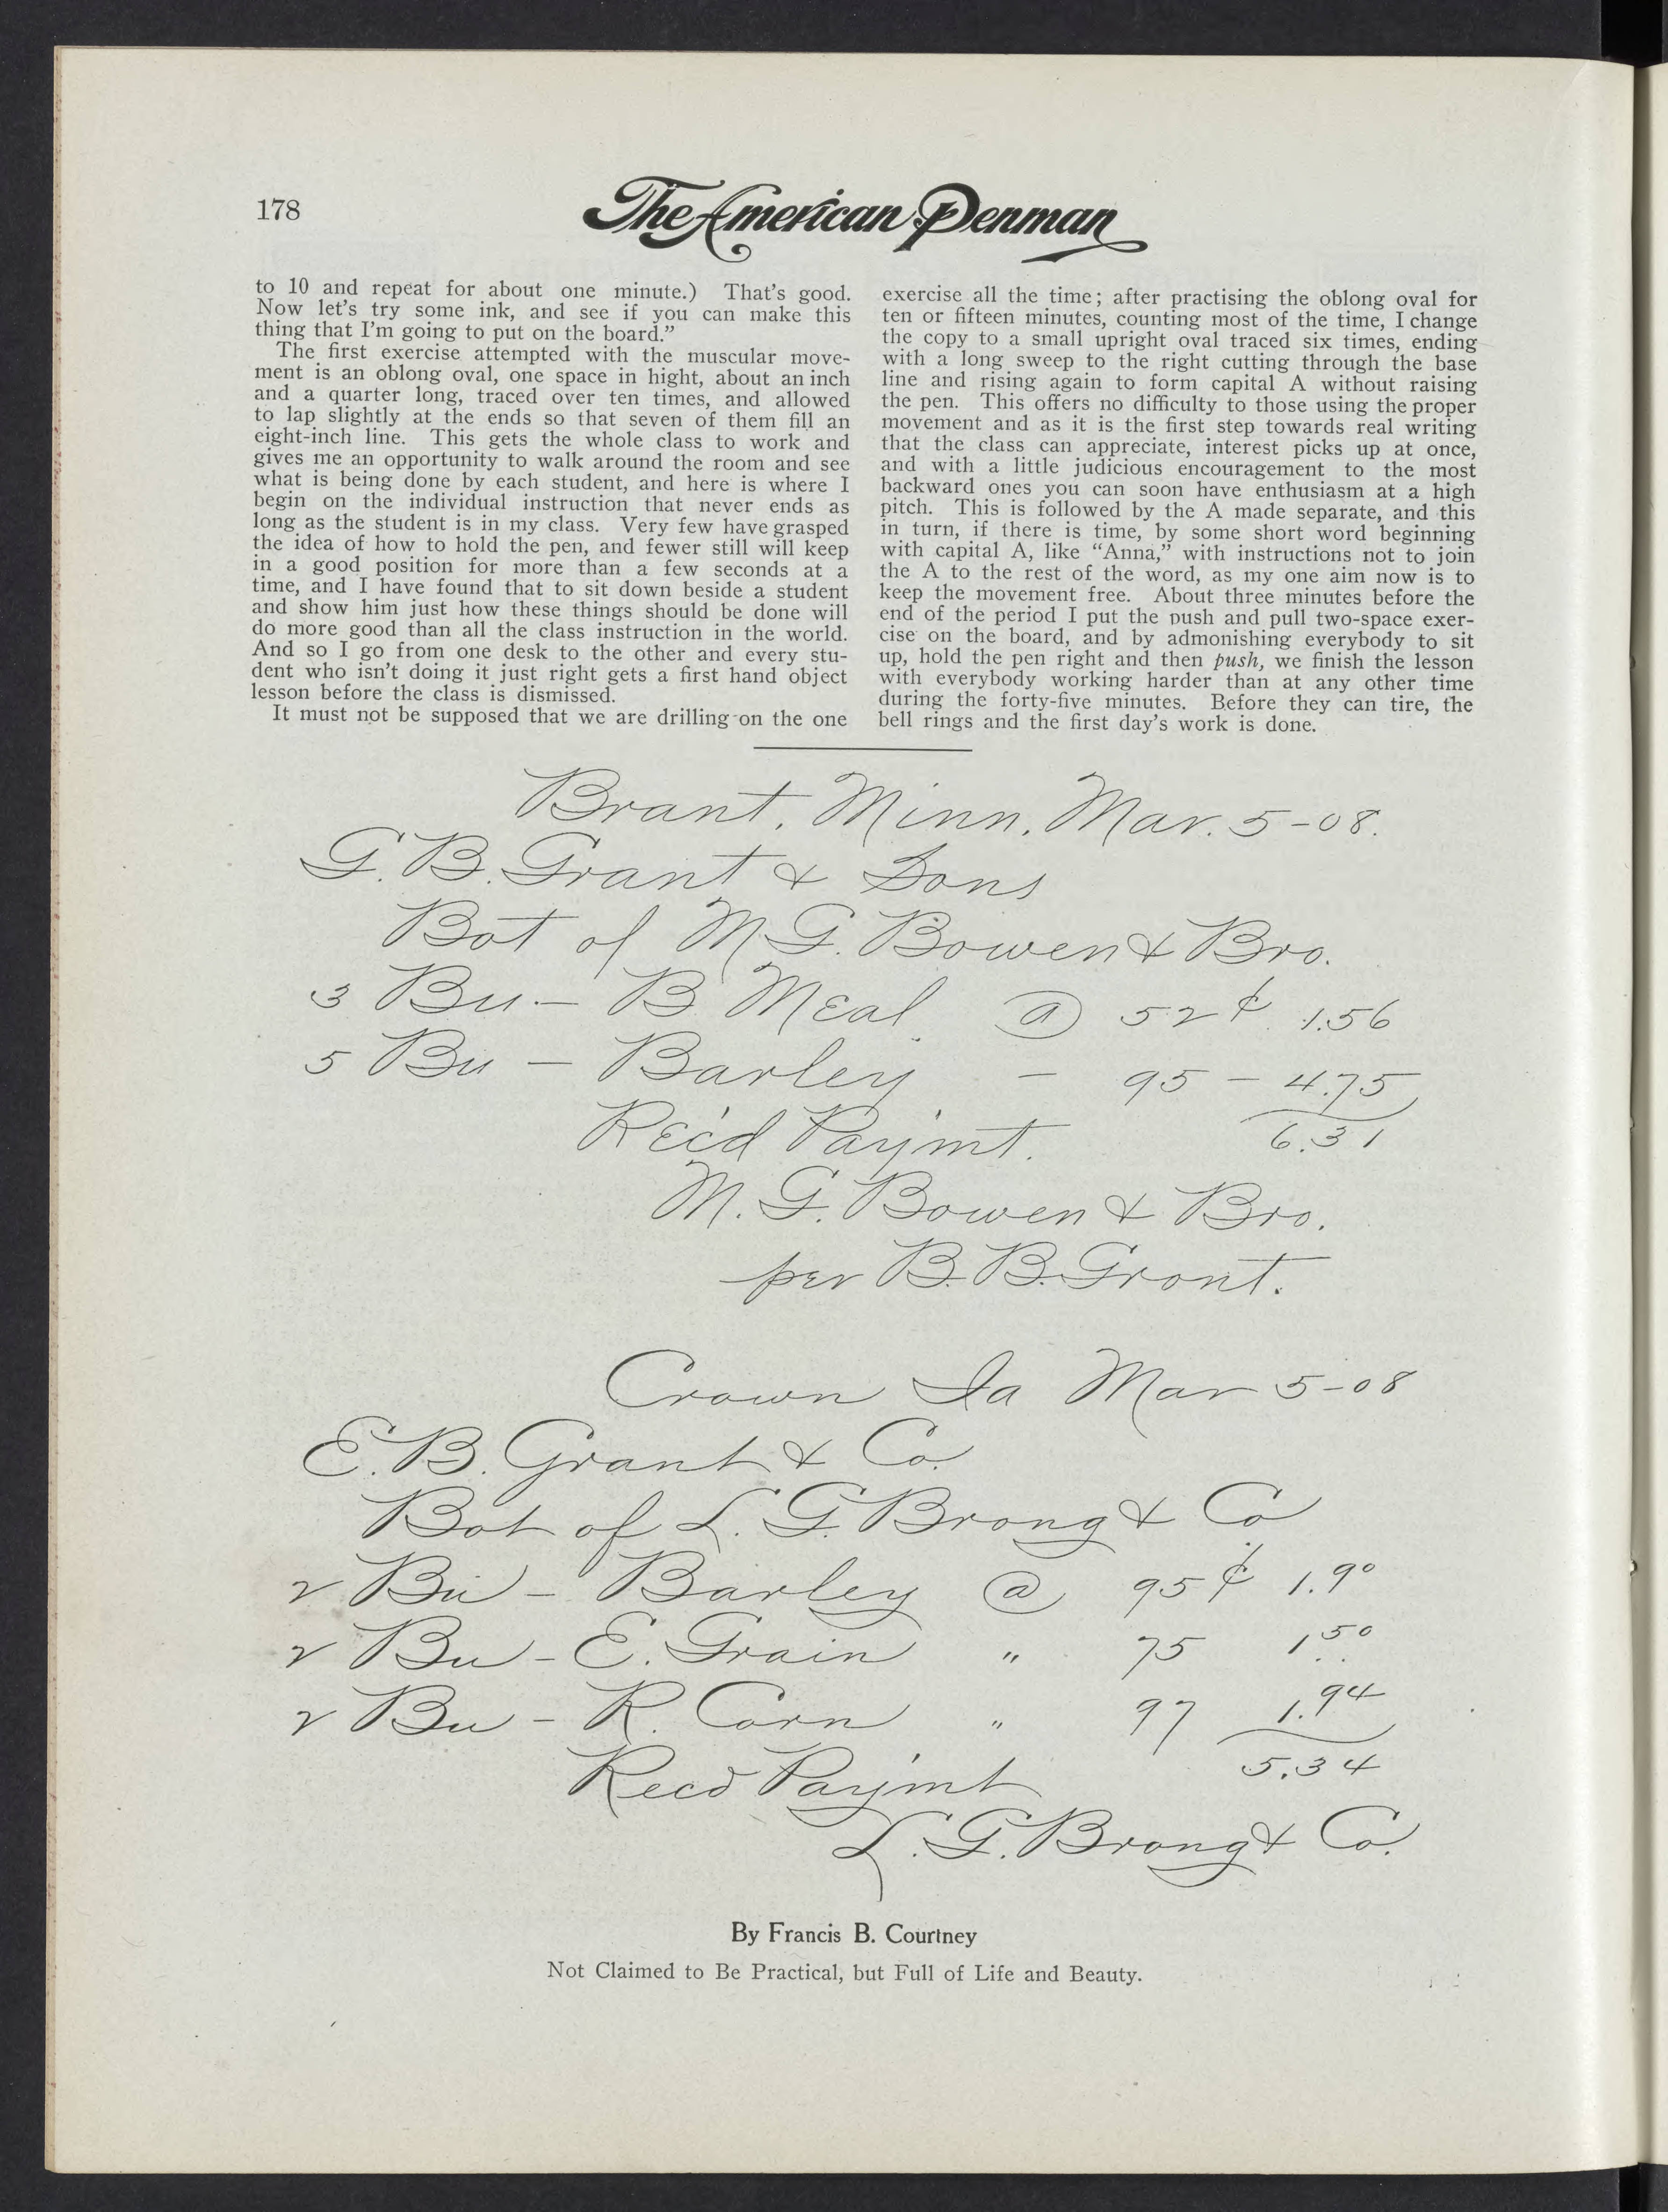 178
The American Penman
to 10 and repeat for about one minute.) That's good.
Now let's try some ink, and see if you can make this
thing that I'm going to put on the board."
The first exercise attempted with the muscular move-
ment is an oblong oval, one space in hight, about an inch
and a quarter long, traced over ten times, and allowed
to lap slightly at the ends so that seven of them fill an
eight-inch line. This gets the whole class to work and
gives me an opportunity to walk around the room and see
what is being done by each student, and here is where I
begin on the individual instruction that never ends as
long as the student is in my class. Very few have grasped
the idea of how to hold the pen, and fewer still will keep
in a good position for more than a few seconds at a
time, and I have found that to sit down beside a student
and show him just how these things should be done will
do more good than all the class instruction in the world.
And so I go from one desk to the other and every stu-
dent who isn't doing it just right gets a first hand object
lesson before the class is dismissed.
It must not be supposed that we are drilling on the one
exercise all the time; after practising the oblong oval for
ten or fifteen minutes, counting most of the time, I change
the copy to a small upright oval traced six times, ending
with a long sweep to the right cutting through the base
line and rising again to form capital A without raising
the pen. This offers no difficulty to those using the proper
movement and as it is the first step towards real writing
that the class can appreciate, interest picks up at once,
and with a little judicious encouragement to the most
backward ones you can soon have enthusiasm at a high
pitch. This is followed by the A made separate, and this
in turn, if there is time, by some short word beginning
with capital A, like "Anna," with instructions not to join
the A to the rest of the word, as my one aim now is to
keep the movement free. About three minutes before the
end of the period I put the push and pull two-space exer-
cise on the board, and by admonishing everybody to sit
up, hold the pen right and then push, we finish the lesson
with everybody working harder than at any other time
during the forty-five minutes. Before they can tire, the
bell rings and the first day's work is done.
Brant, Minn. Mar. 5-08.
G. B. Grant & Sons
Bot of M G. Bowen & Bro.
3 Bu - B Meal @ 52¢ 1.56
5 Bu - Barley - 95 - 4.75
Rec'd Paym't. 6.31
M. G. Bowen & Bro.
per B. B. Gront.
Crown Ia Mar 5-08
E. B. Grant & Co.
Bot of L. G. Brong & Co
2 Bu - Barley @ 95¢ 1.90
2 Bu - E. Grain " 75 1 50
2 Bu - R. Corn " 97 1.94
Recd Paym't 5.34
L. G. Brong & Co.
By Francis B. Courtney
Not Claimed to Be Practical, but Full of Life and Beauty.